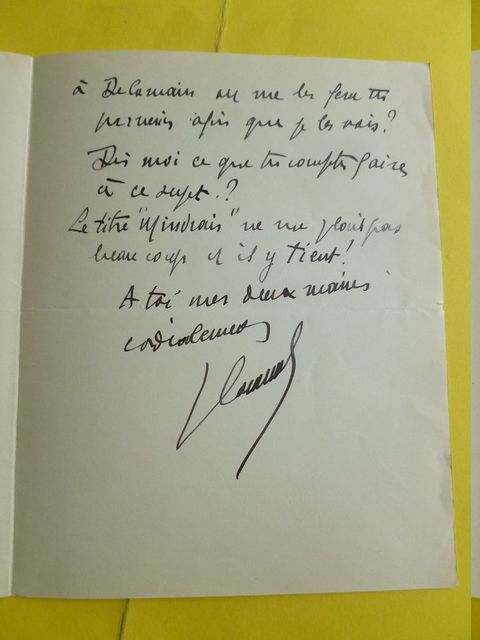 à Delamain ou me les feras tu
parvenir afin que je les vois?
Dis moi ce que tu comptes faire
à ce sujet.?
Le titre " " ne me plait pas
beaucoup et il y tient!
A toi mes deux mains
cordialement